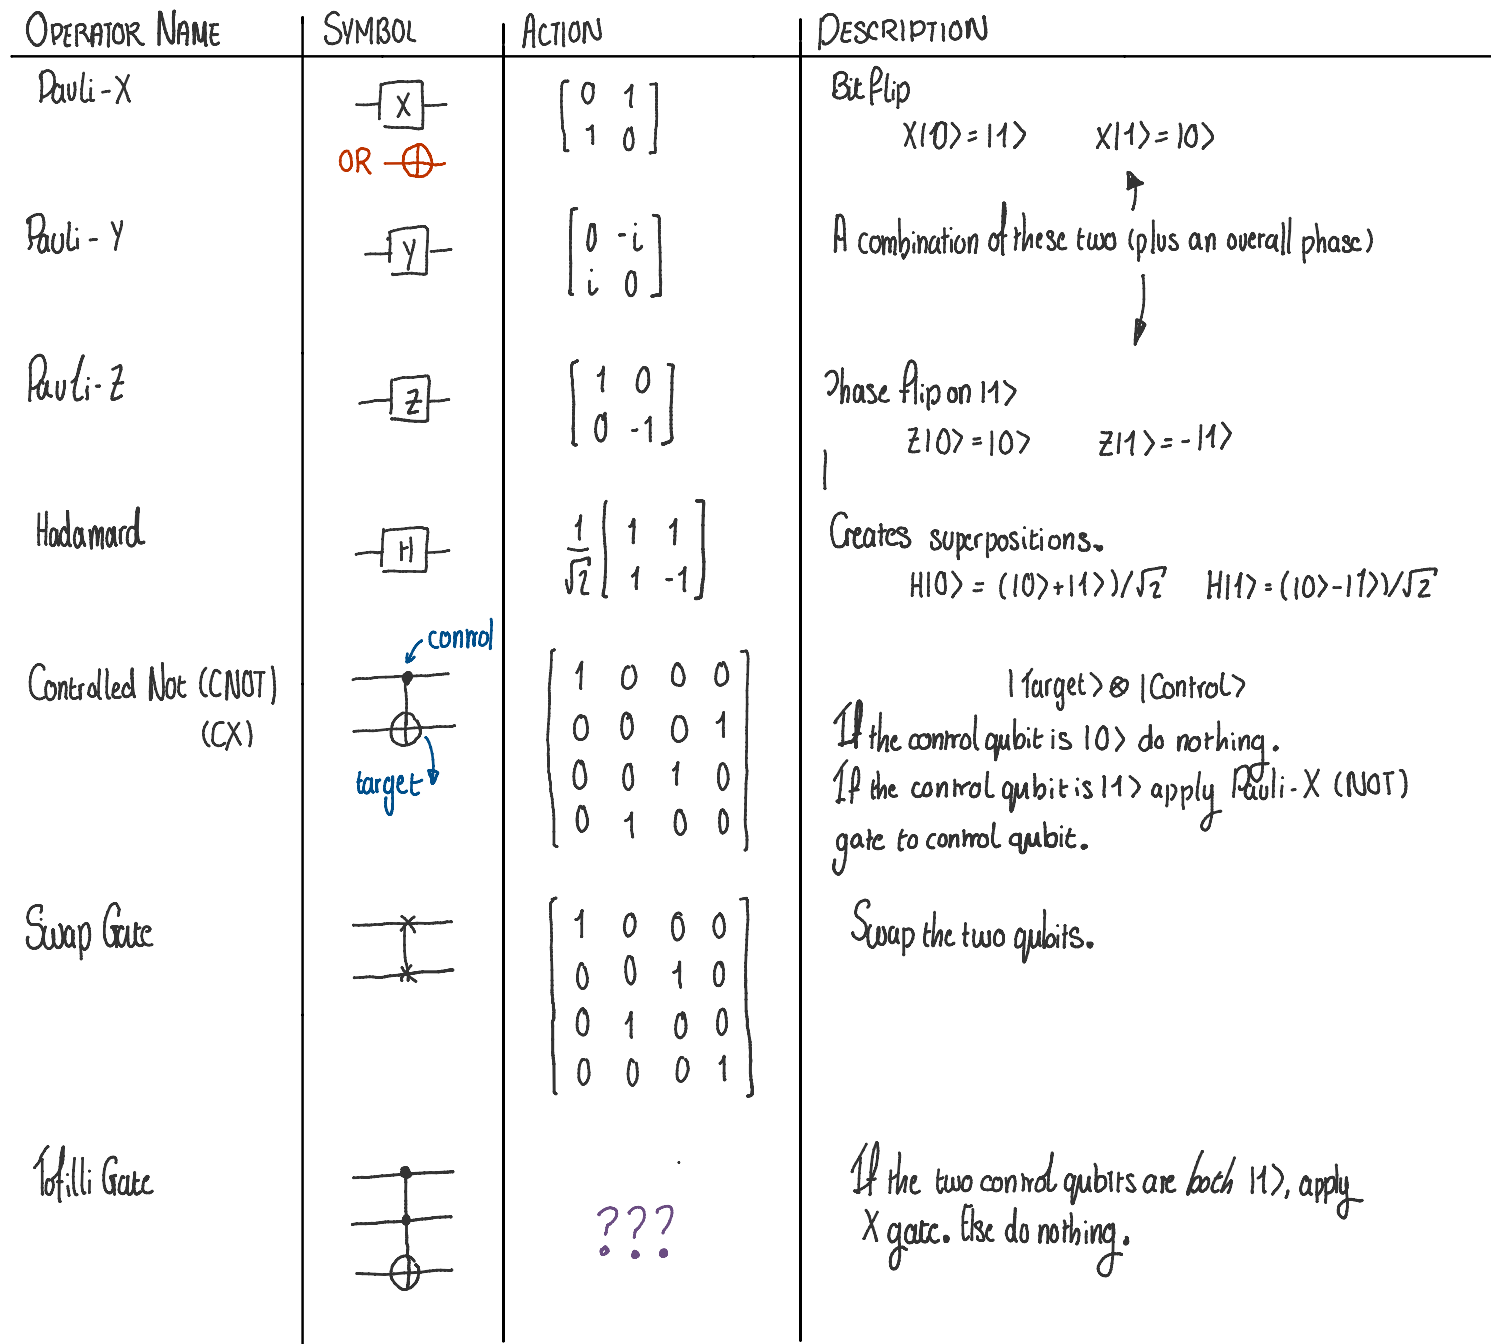 OPERATOR NAME SYMBOL ACTION DESCRIPTION
Pauli-X
X
OR
[0 1
1 0]
Bit flip
X|0>=|1> X|1>=|0>
Pauli-Y
Y
[0 -i
i 0]
A combination of these two (plus an overall phase)
Pauli-Z
Z
[1 0
0 -1]
Phase flip on |1>
Z|0>=|0> Z|1>=-|1>
Hadamard
H
1/√2 [1 1
1 -1]
Creates superpositions.
H|0> = (|0>+|1>)/√2 H|1>=(|0>-|1>)/√2
Controlled Not (CNOT)
(CX)
control
target
[1 0 0 0
0 0 0 1
0 0 1 0
0 1 0 0]
|Target>⊗|Control>
If the control qubit is |0> do nothing.
If the control qubit is |1> apply Pauli-X (NOT)
gate to control qubit.
Swap Gate
[1 0 0 0
0 0 1 0
0 1 0 0
0 0 0 1]
Swap the two qubits.
Tofilli Gate
???
If the two control qubits are both |1>, apply
X gate. Else do nothing.